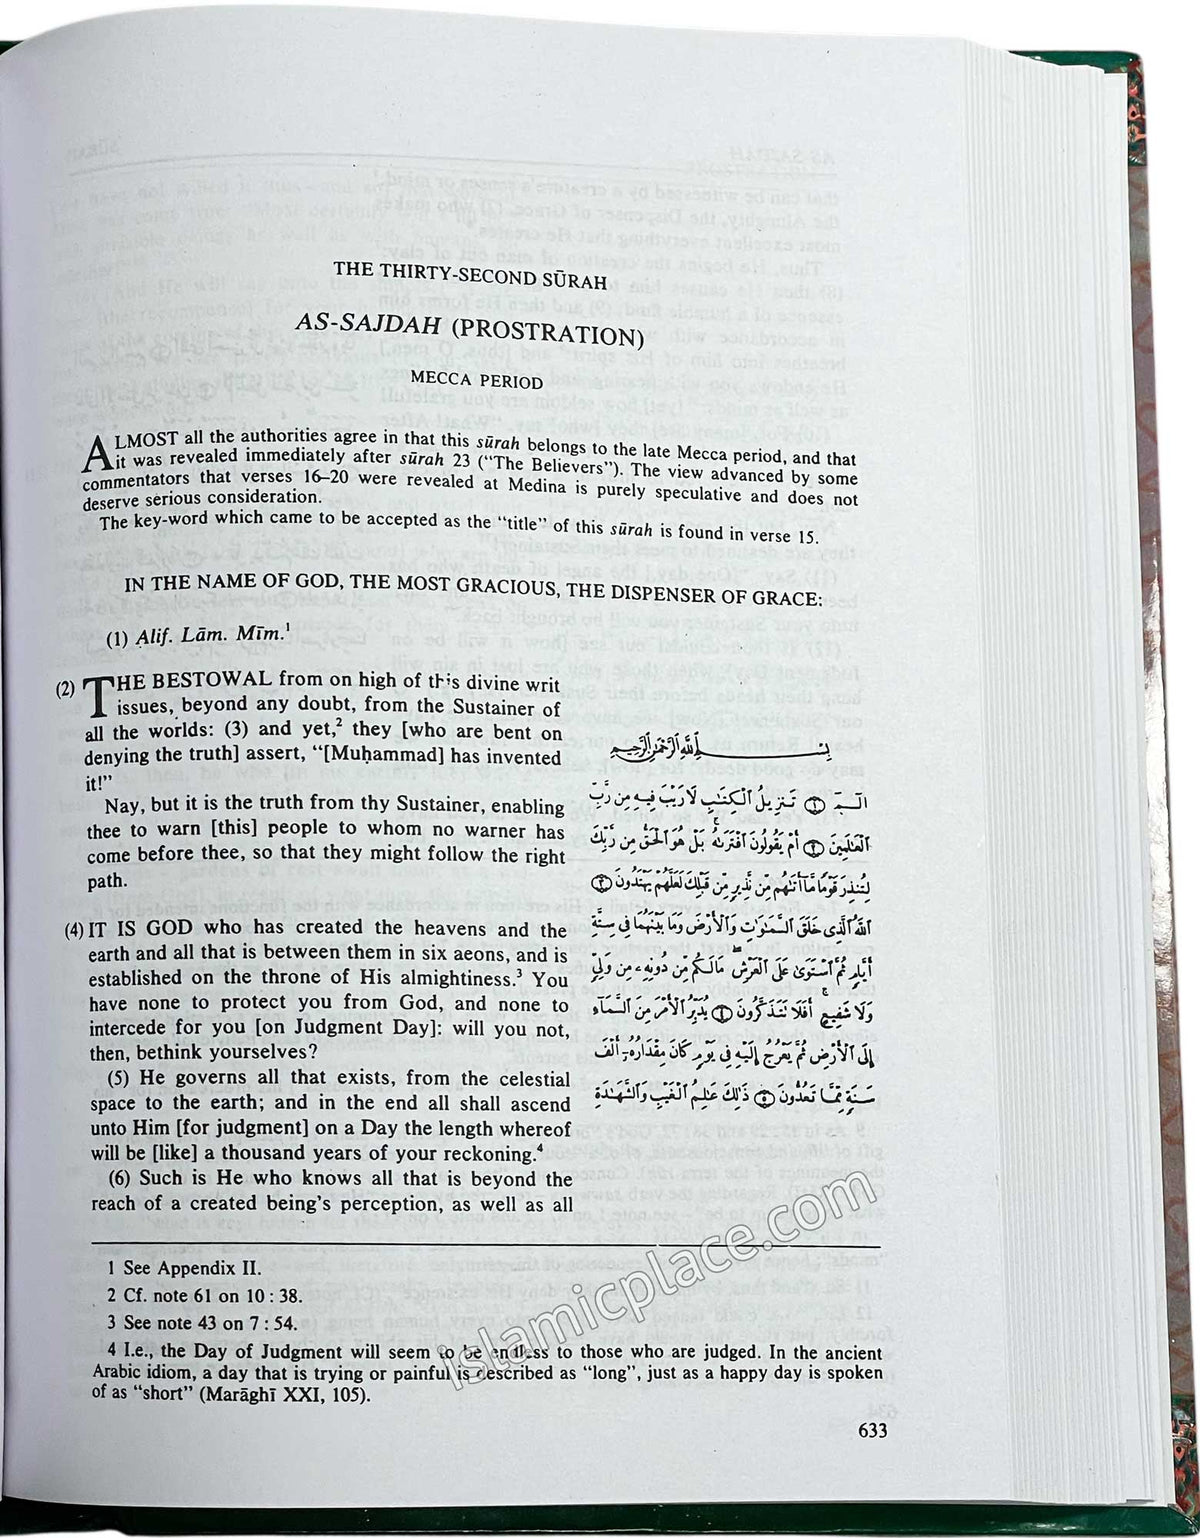 THE THIRTY-SECOND SŪRAH
AS-SAJDAH (PROSTRATION)
MECCA PERIOD
ALMOST all the authorities agree in that this sūrah belongs to the late Mecca period, and that
it was revealed immediately after sūrah 23 (“The Believers”). The view advanced by some
commentators that verses 16–20 were revealed at Medina is purely speculative and does not
deserve serious consideration.
The key-word which came to be accepted as the “title” of this sūrah is found in verse 15.
IN THE NAME OF GOD, THE MOST GRACIOUS, THE DISPENSER OF GRACE:
(1) Alif. Lām. Mīm.¹
(2) THE BESTOWAL from on high of this divine writ
issues, beyond any doubt, from the Sustainer of
all the worlds: (3) and yet,² they [who are bent on
denying the truth] assert, “[Muḥammad] has invented
it!”
Nay, but it is the truth from thy Sustainer, enabling
thee to warn [this] people to whom no warner has
come before thee, so that they might follow the right
path.
(4) IT IS GOD who has created the heavens and the
earth and all that is between them in six aeons, and is
established on the throne of His almightiness.³ You
have none to protect you from God, and none to
intercede for you [on Judgment Day]: will you not,
then, bethink yourselves?
(5) He governs all that exists, from the celestial
space to the earth; and in the end all shall ascend
unto Him [for judgment] on a Day the length whereof
will be [like] a thousand years of your reckoning.⁴
(6) Such is He who knows all that is beyond the
reach of a created being’s perception, as well as all
بِسْمِ اللَّهِ الرَّحْمَٰنِ الرَّحِيمِ
الٓمٓ ۝١ تَنزِيلُ الْكِتَٰبِ لَا رَيْبَ فِيهِ مِن رَّبِّ
الْعَٰلَمِينَ ۝٢ أَمْ يَقُولُونَ افْتَرَىٰهُ ۚ بَلْ هُوَ الْحَقُّ مِن رَّبِّكَ
لِتُنذِرَ قَوْمًا مَّآ أَتَىٰهُم مِّن نَّذِيرٍ مِّن قَبْلِكَ لَعَلَّهُمْ يَهْتَدُونَ ۝٣
اللَّهُ الَّذِى خَلَقَ السَّمَٰوَٰتِ وَالْأَرْضَ وَمَا بَيْنَهُمَا فِى سِتَّةِ
أَيَّامٍ ثُمَّ اسْتَوَىٰ عَلَى الْعَرْشِ ۖ مَا لَكُم مِّن دُونِهِۦ مِن وَلِىٍّ
وَلَا شَفِيعٍ ۚ أَفَلَا تَتَذَكَّرُونَ ۝٤ يُدَبِّرُ الْأَمْرَ مِنَ السَّمَآءِ
إِلَى الْأَرْضِ ثُمَّ يَعْرُجُ إِلَيْهِ فِى يَوْمٍ كَانَ مِقْدَارُهُۥٓ أَلْفَ
سَنَةٍ مِّمَّا تَعُدُّونَ ۝٥ ذَٰلِكَ عَٰلِمُ الْغَيْبِ وَالشَّهَٰدَةِ
1 See Appendix II.
2 Cf. note 61 on 10 : 38.
3 See note 43 on 7 : 54.
4 I.e., the Day of Judgment will seem to be endless to those who are judged. In the ancient
Arabic idiom, a day that is trying or painful is described as “long”, just as a happy day is spoken
of as “short” (Marāghī XXI, 105).
633
islamicplace.com